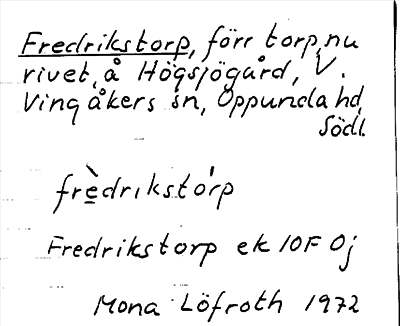 Fredrikstorp, förr torp, nu
rivet, å Högsjögård, V.
Vingåkers sn, Oppunda hd,
Södl.
frèdrikstórp
Fredrikstorp ek 10F Oj
Mona Löfroth 1972